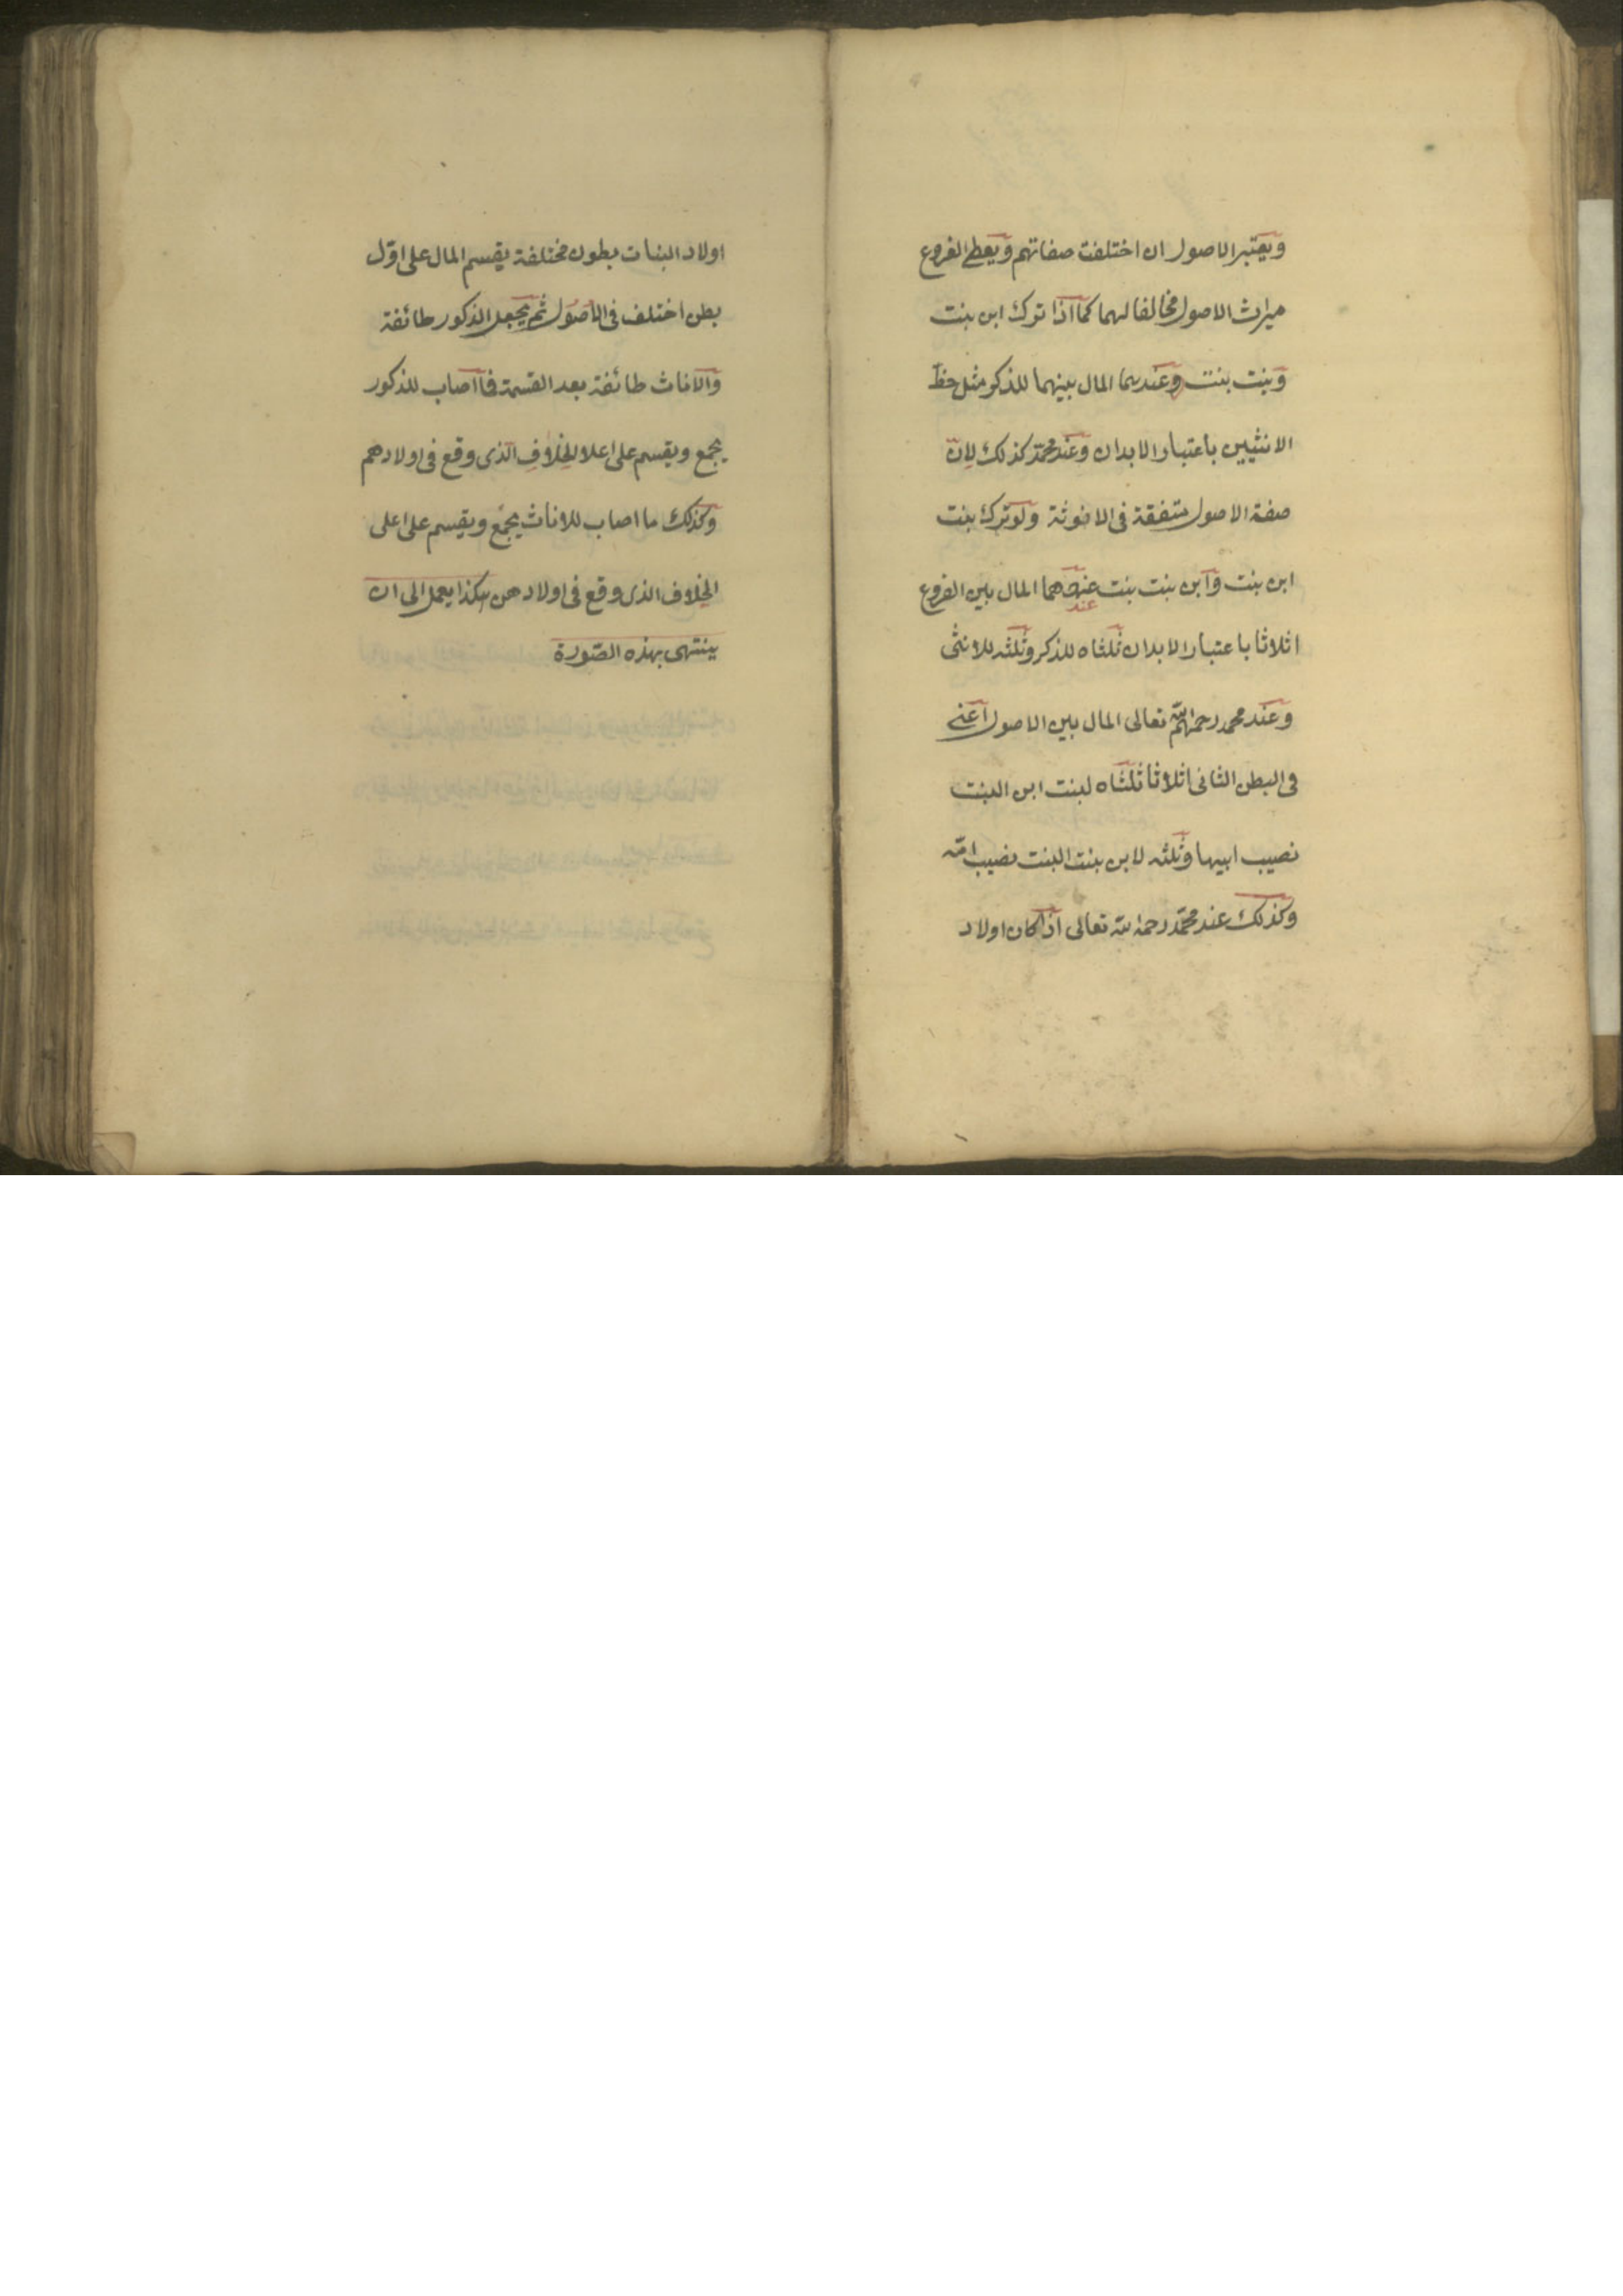 ويعتبر الاصول ان اختلفت صفاتهم ويعطى الفروع
ميراث الاصول مخالفا لهما كما اذا ترك ابن بنت
وبنت بنت وعندهما المال بينهما للذكر مثل حظ
الانثيين باعتبار الابدان وعند محمّد كذلك لانّ
صفة الاصول متفقة فى الانوثة ولو ترك بنت
ابن بنت وابن بنت بنت عندهما المال بين الفروع
عند
اثلاثا باعتبار الابدان ثلثاه للذكر وثلثه للانثى
وعند محمد رحمه الله تعالى المال بين الاصول اعنى
فى البطن الثانى اثلاثا ثلثاه لبنت ابن البنت
نصيب ابيها وثلثه لابن بنت البنت نصيب امّه
وكذلك عند محمّد رحمه الله تعالى اذا كان اولاد
اولاد البنات بطون مختلفة يقسم المال على اوّل
بطن اختلف فى الاصُول ثم يجعل الذكور طائفة
والاناث طائفة بعد القسمة فما اصاب للذكور
يجمع ويقسم على اعلا الخِلافِ الّذى وقع فى اولادهم
وكذلك ما اصاب للاناث يجمَع ويقسم على اعلى
الخِلاف الذى وقع فى اولادهن هكذا يعمل الى ان
ينتهى بهذه الصّورة